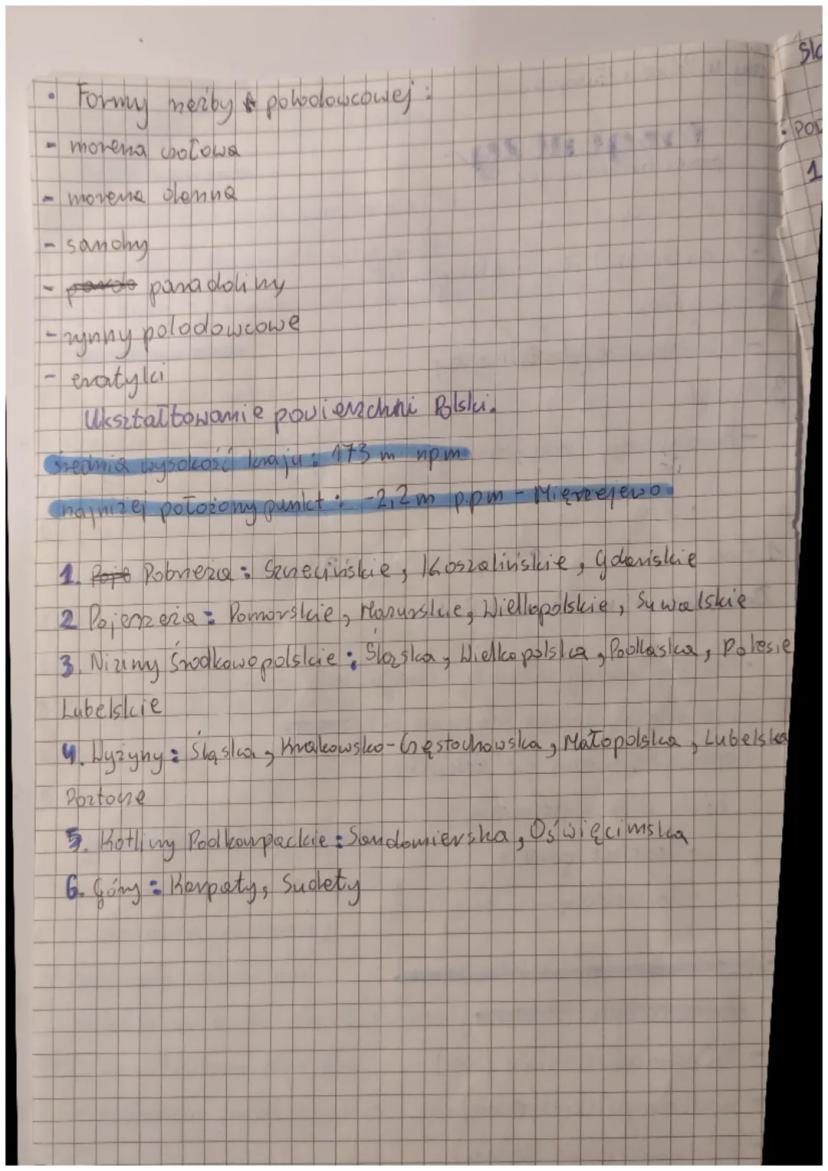 • Formy rzeźby polodowcowej:
- morena czołowa
- morena denna
- sandry
- pradoliny
- rynny polodowcowe
- eratyki
Ukształtowanie powierzchni Polski.
średnia wysokość kraju: 173 m npm
najniżej położony punkt: -2,2m p.p.m - Mierzejewo
1. Pobrzeża: Szczecińskie, Koszalińskie, Gdańskie
2 Pojezerza: Pomorskie, Mazurskie, Wielkopolskie, Suwalskie
3. Niziny Środkowopolskie: Śląska, Wielkopolska, Podlaska, Polesie
Lubelskie
4. Wyżyny: Śląska, Krakowsko-Częstochowska, Małopolska, Lubelska
Roztocze
5. Kotliny Podkarpackie: Sandomierska, Oświęcimska
6. Góry: Karpaty, Sudety
1